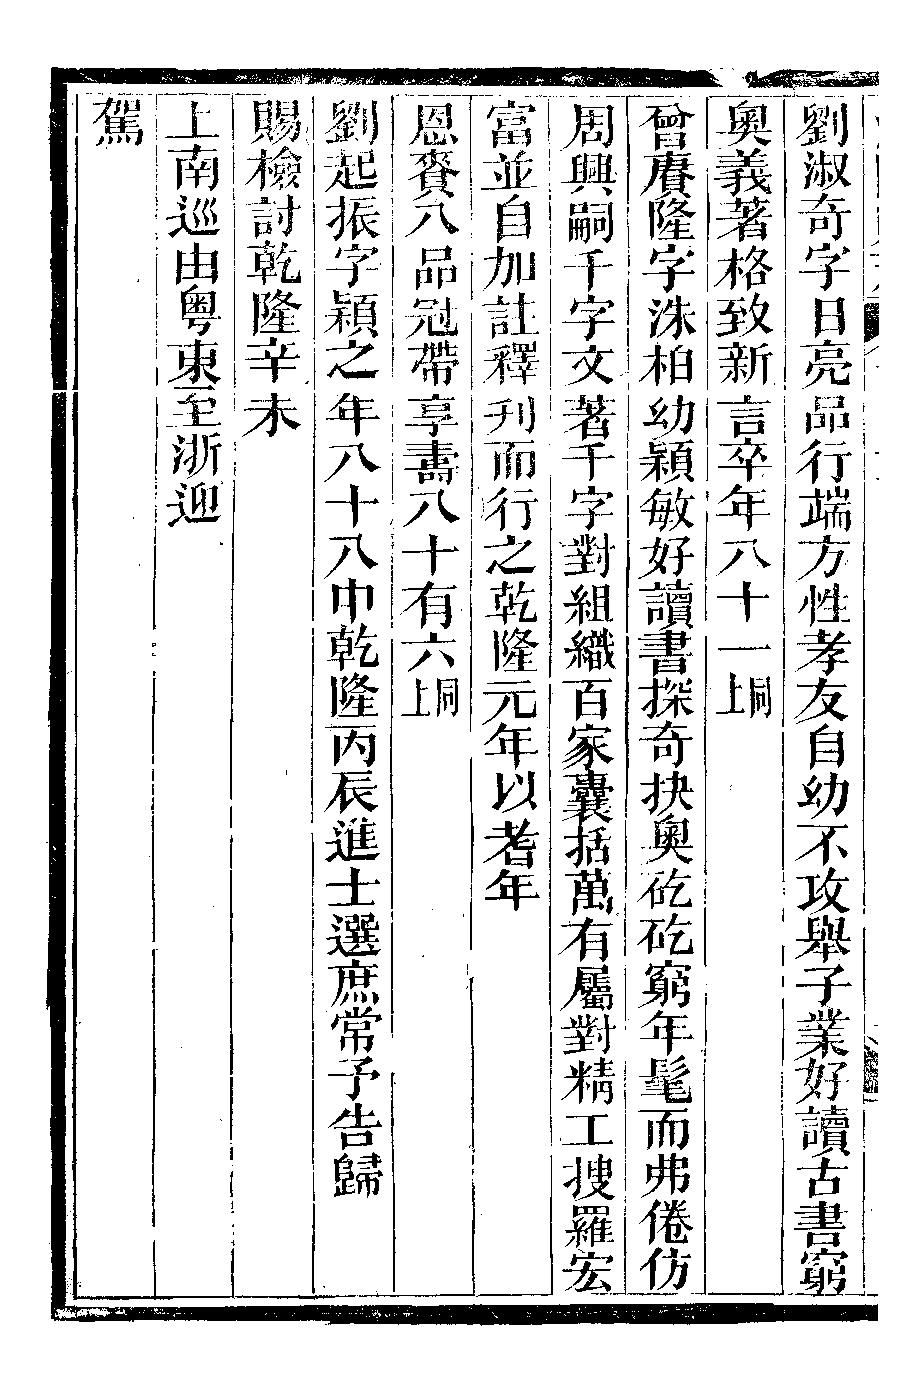 劉淑奇字日亮品行端方性孝友自幼不攻舉子業好讀古書窮
奧義著格致新言卒年八十一同上
曾賡隆字洙柏幼穎敏好讀書探奇抉奧矻矻窮年髦而弗倦仿
周興嗣千字文著千字對組織百家囊括萬有屬對精工搜羅宏
富並自加註釋刋而行之乾隆元年以耆年
恩賚八品冠帶享壽八十有六同上
劉起振字穎之年八十八中乾隆丙辰進士選庶常予告歸
賜檢討乾隆辛未
上南巡由粤東至浙迎
駕